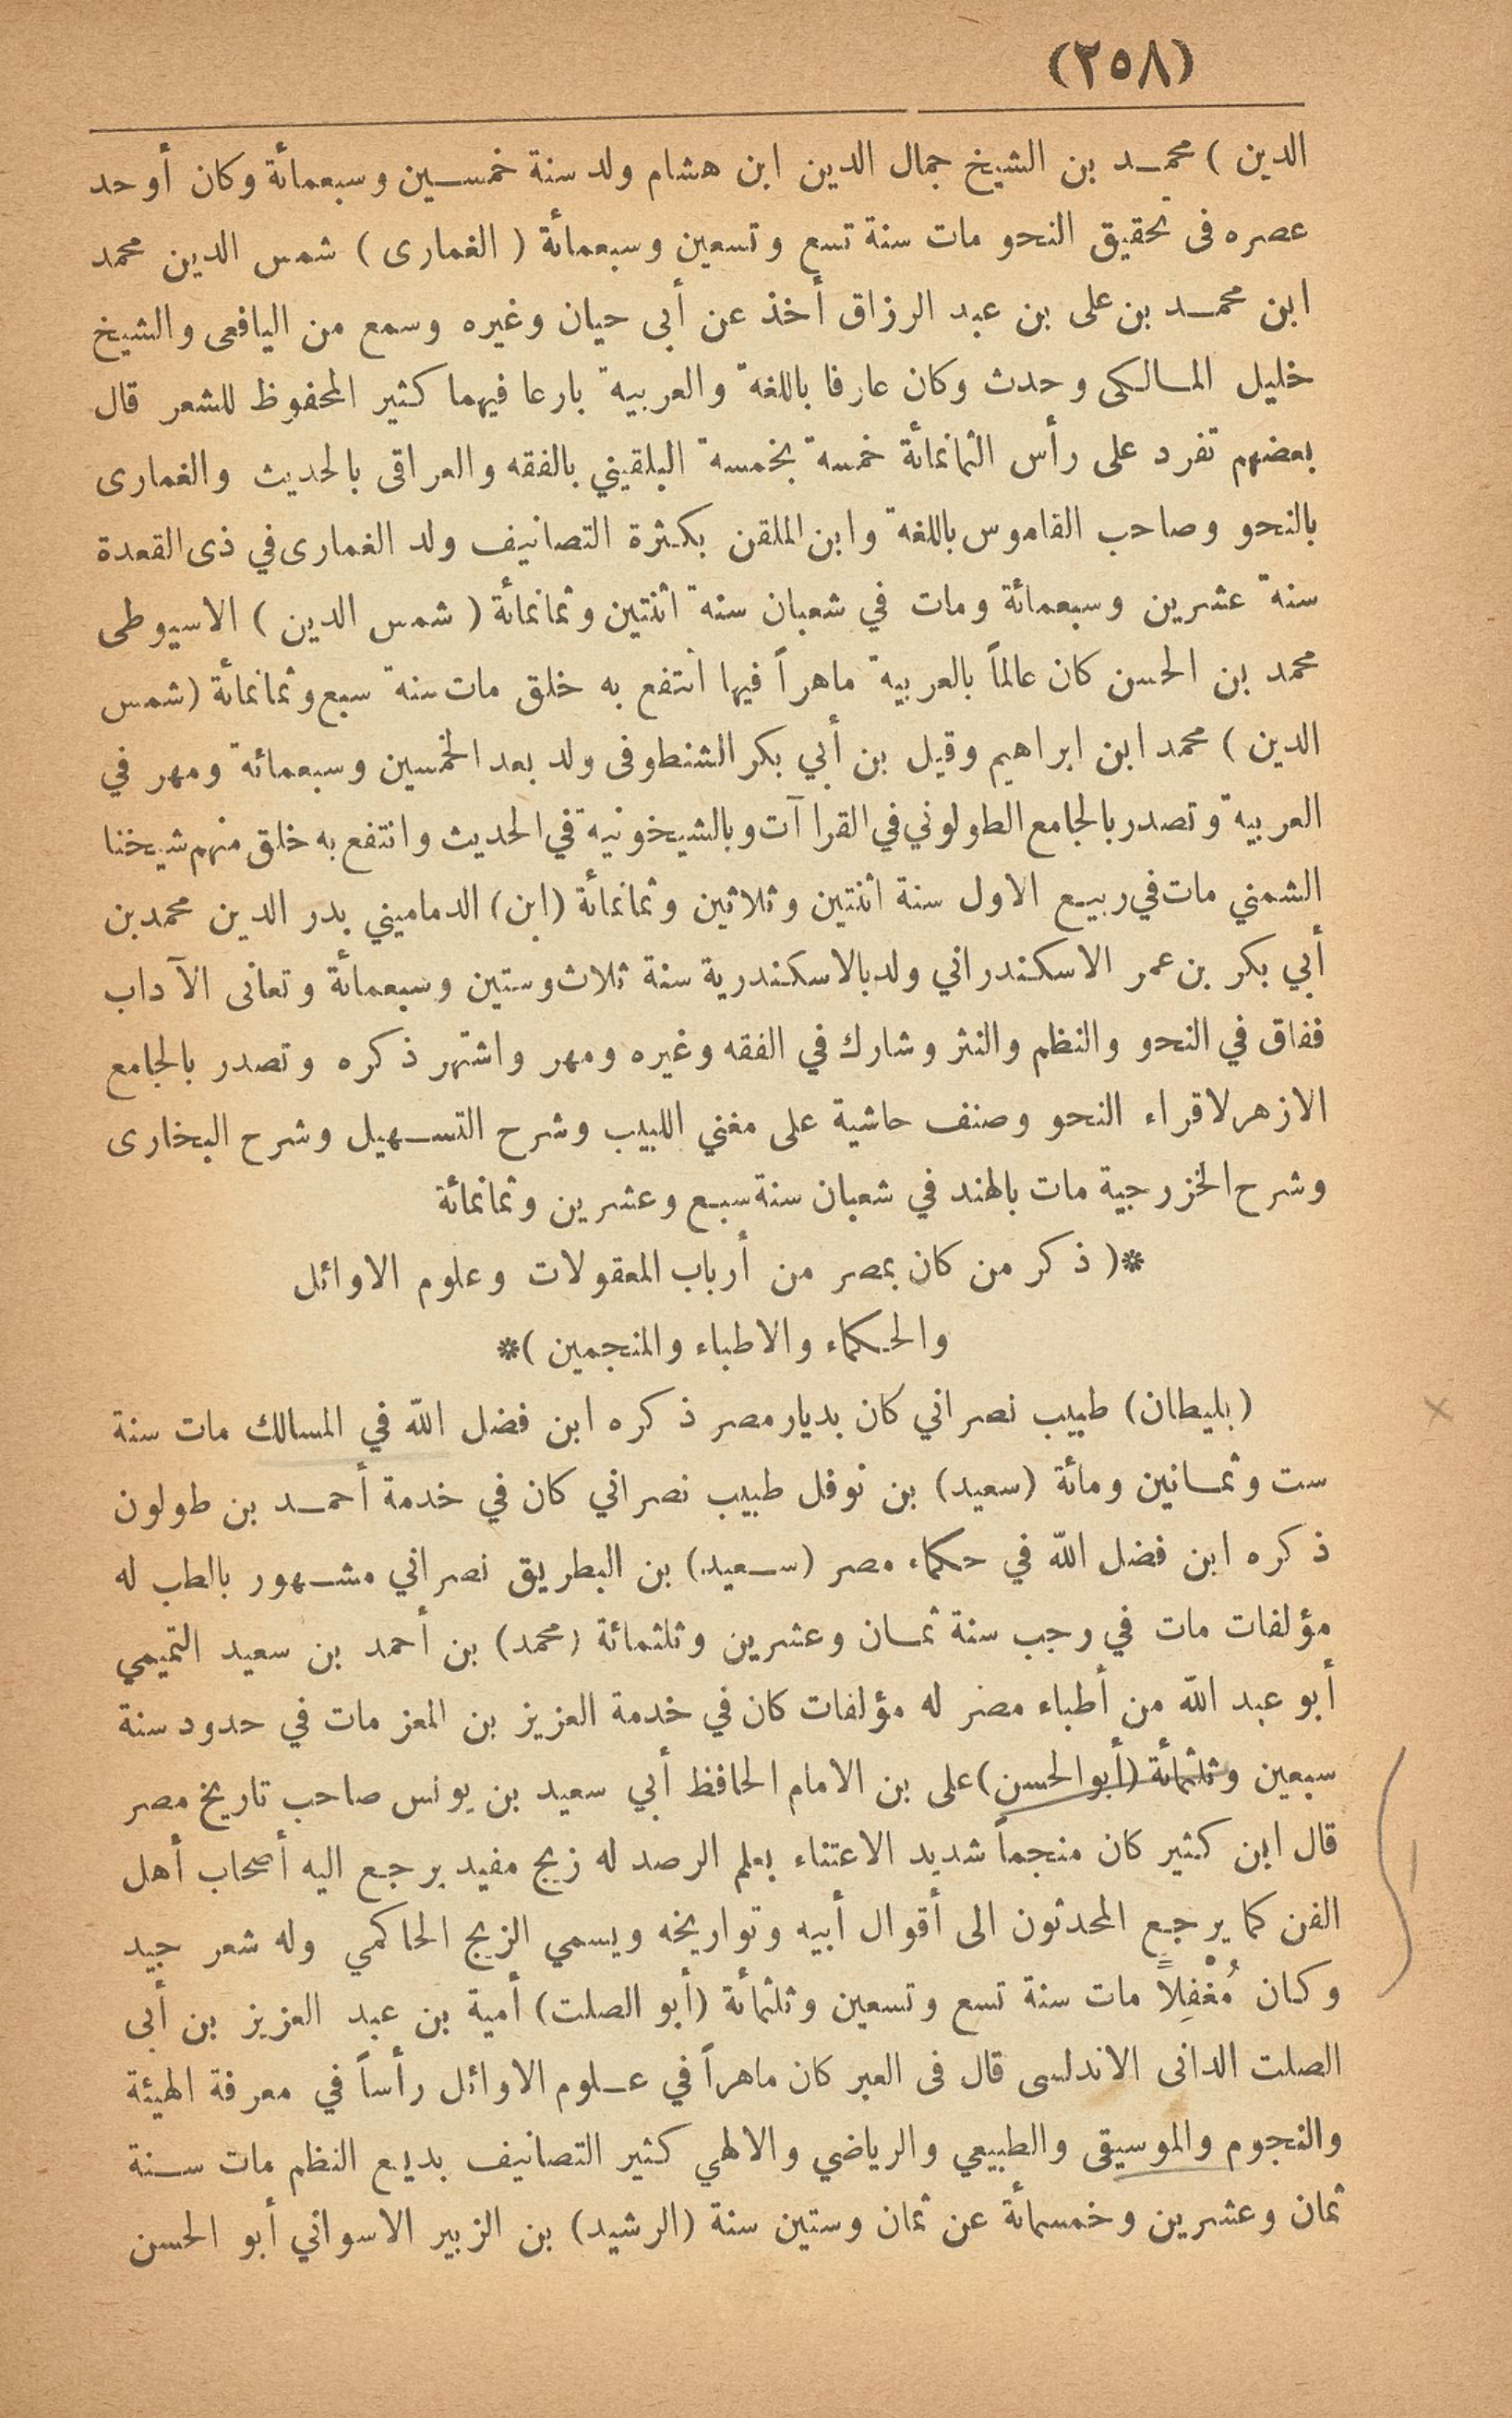 (٢٥٨)
الدين ) محمد بن الشيخ جمال الدين ابن هشام ولد سنة خمسين وسبعمائة وكان أوحد
عصره فى تحقيق النحو مات سنة تسع وتسعين وسبعمائة ( الغمارى ) شمس الدين محمد
ابن محمد بن على بن عبد الرزاق أخذ عن أبى حيان وغيره وسمع من اليافعى والشيخ
خليل المالكى وحدث وكان عارفا باللغة والعربية بارعا فيهما كثير المحفوظ للشعر قال
بعضهم تفرد على رأس الثمانمائة خمسة بخمسة البلقيني بالفقه والعراقى بالحديث والغمارى
بالنحو وصاحب القاموس باللغة وابن الملقن بكثرة التصانيف ولد الغمارى في ذى القعدة
سنة عشرين وسبعمائة ومات في شعبان سنة اثنتين وثمانمائة ( شمس الدين ) الاسيوطى
محمد بن الحسن كان عالماً بالعربية ماهراً فيها انتفع به خلق مات سنة سبع وثمانمائة (شمس
الدين ) محمد ابن ابراهيم وقيل بن أبي بكر الشنطوفى ولد بعد الخمسين وسبعمائة ومهر في
العربية وتصدر بالجامع الطولوني في القراآت وبالشيخونية في الحديث وانتفع به خلق منهم شيخنا
الشمني مات في ربيع الاول سنة اثنتين وثلاثين وثمانمائة (ابن) الدماميني بدر الدين محمد بن
أبي بكر بن عمر الاسكندراني ولد بالاسكندرية سنة ثلاث وستين وسبعمائة وتعانى الآداب
ففاق في النحو والنظم والنثر وشارك في الفقه وغيره ومهر واشتهر ذكره وتصدر بالجامع
الازهر لاقراء النحو وصنف حاشية على مغني اللبيب وشرح التسهيل وشرح البخارى
وشرح الخزرجية مات بالهند في شعبان سنة سبع وعشرين وثمانمائة
*( ذكر من كان بمصر من أرباب المعقولات وعلوم الاوائل
والحكماء والاطباء والمنجمين )*
(بليطان) طبيب نصراني كان بديار مصر ذكره ابن فضل الله في المسالك مات سنة
ست وثمانين ومائة (سعيد) بن نوفل طبيب نصراني كان في خدمة أحمد بن طولون
ذكره ابن فضل الله في حكماء مصر (سعيد) بن البطريق نصراني مشهور بالطب له
مؤلفات مات في رجب سنة ثمان وعشرين وثلثمائة (محمد) بن أحمد بن سعيد التميمي
أبو عبد الله من أطباء مصر له مؤلفات كان في خدمة العزيز بن المعز مات في حدود سنة
سبعين وثلثمائة (أبو الحسن) على بن الامام الحافظ أبي سعيد بن يونس صاحب تاريخ مصر
قال ابن كثير كان منجماً شديد الاعتناء بعلم الرصد له زيج مفيد يرجع اليه أصحاب أهل
الفن كما يرجع المحدثون الى أقوال أبيه وتواريخه ويسمي الزيج الحاكمي وله شعر جيد
وكان مُغْفِلاً مات سنة تسع وتسعين وثلثمائة (أبو الصلت) أمية بن عبد العزيز بن أبى
الصلت الدانى الاندلسى قال فى العبر كان ماهراً في علوم الاوائل رأساً في معرفة الهيئة
والنجوم والموسيقى والطبيعي والرياضي والالهي كثير التصانيف بديع النظم مات سنة
ثمان وعشرين وخمسمائة عن ثمان وستين سنة (الرشيد) بن الزبير الاسواني أبو الحسن